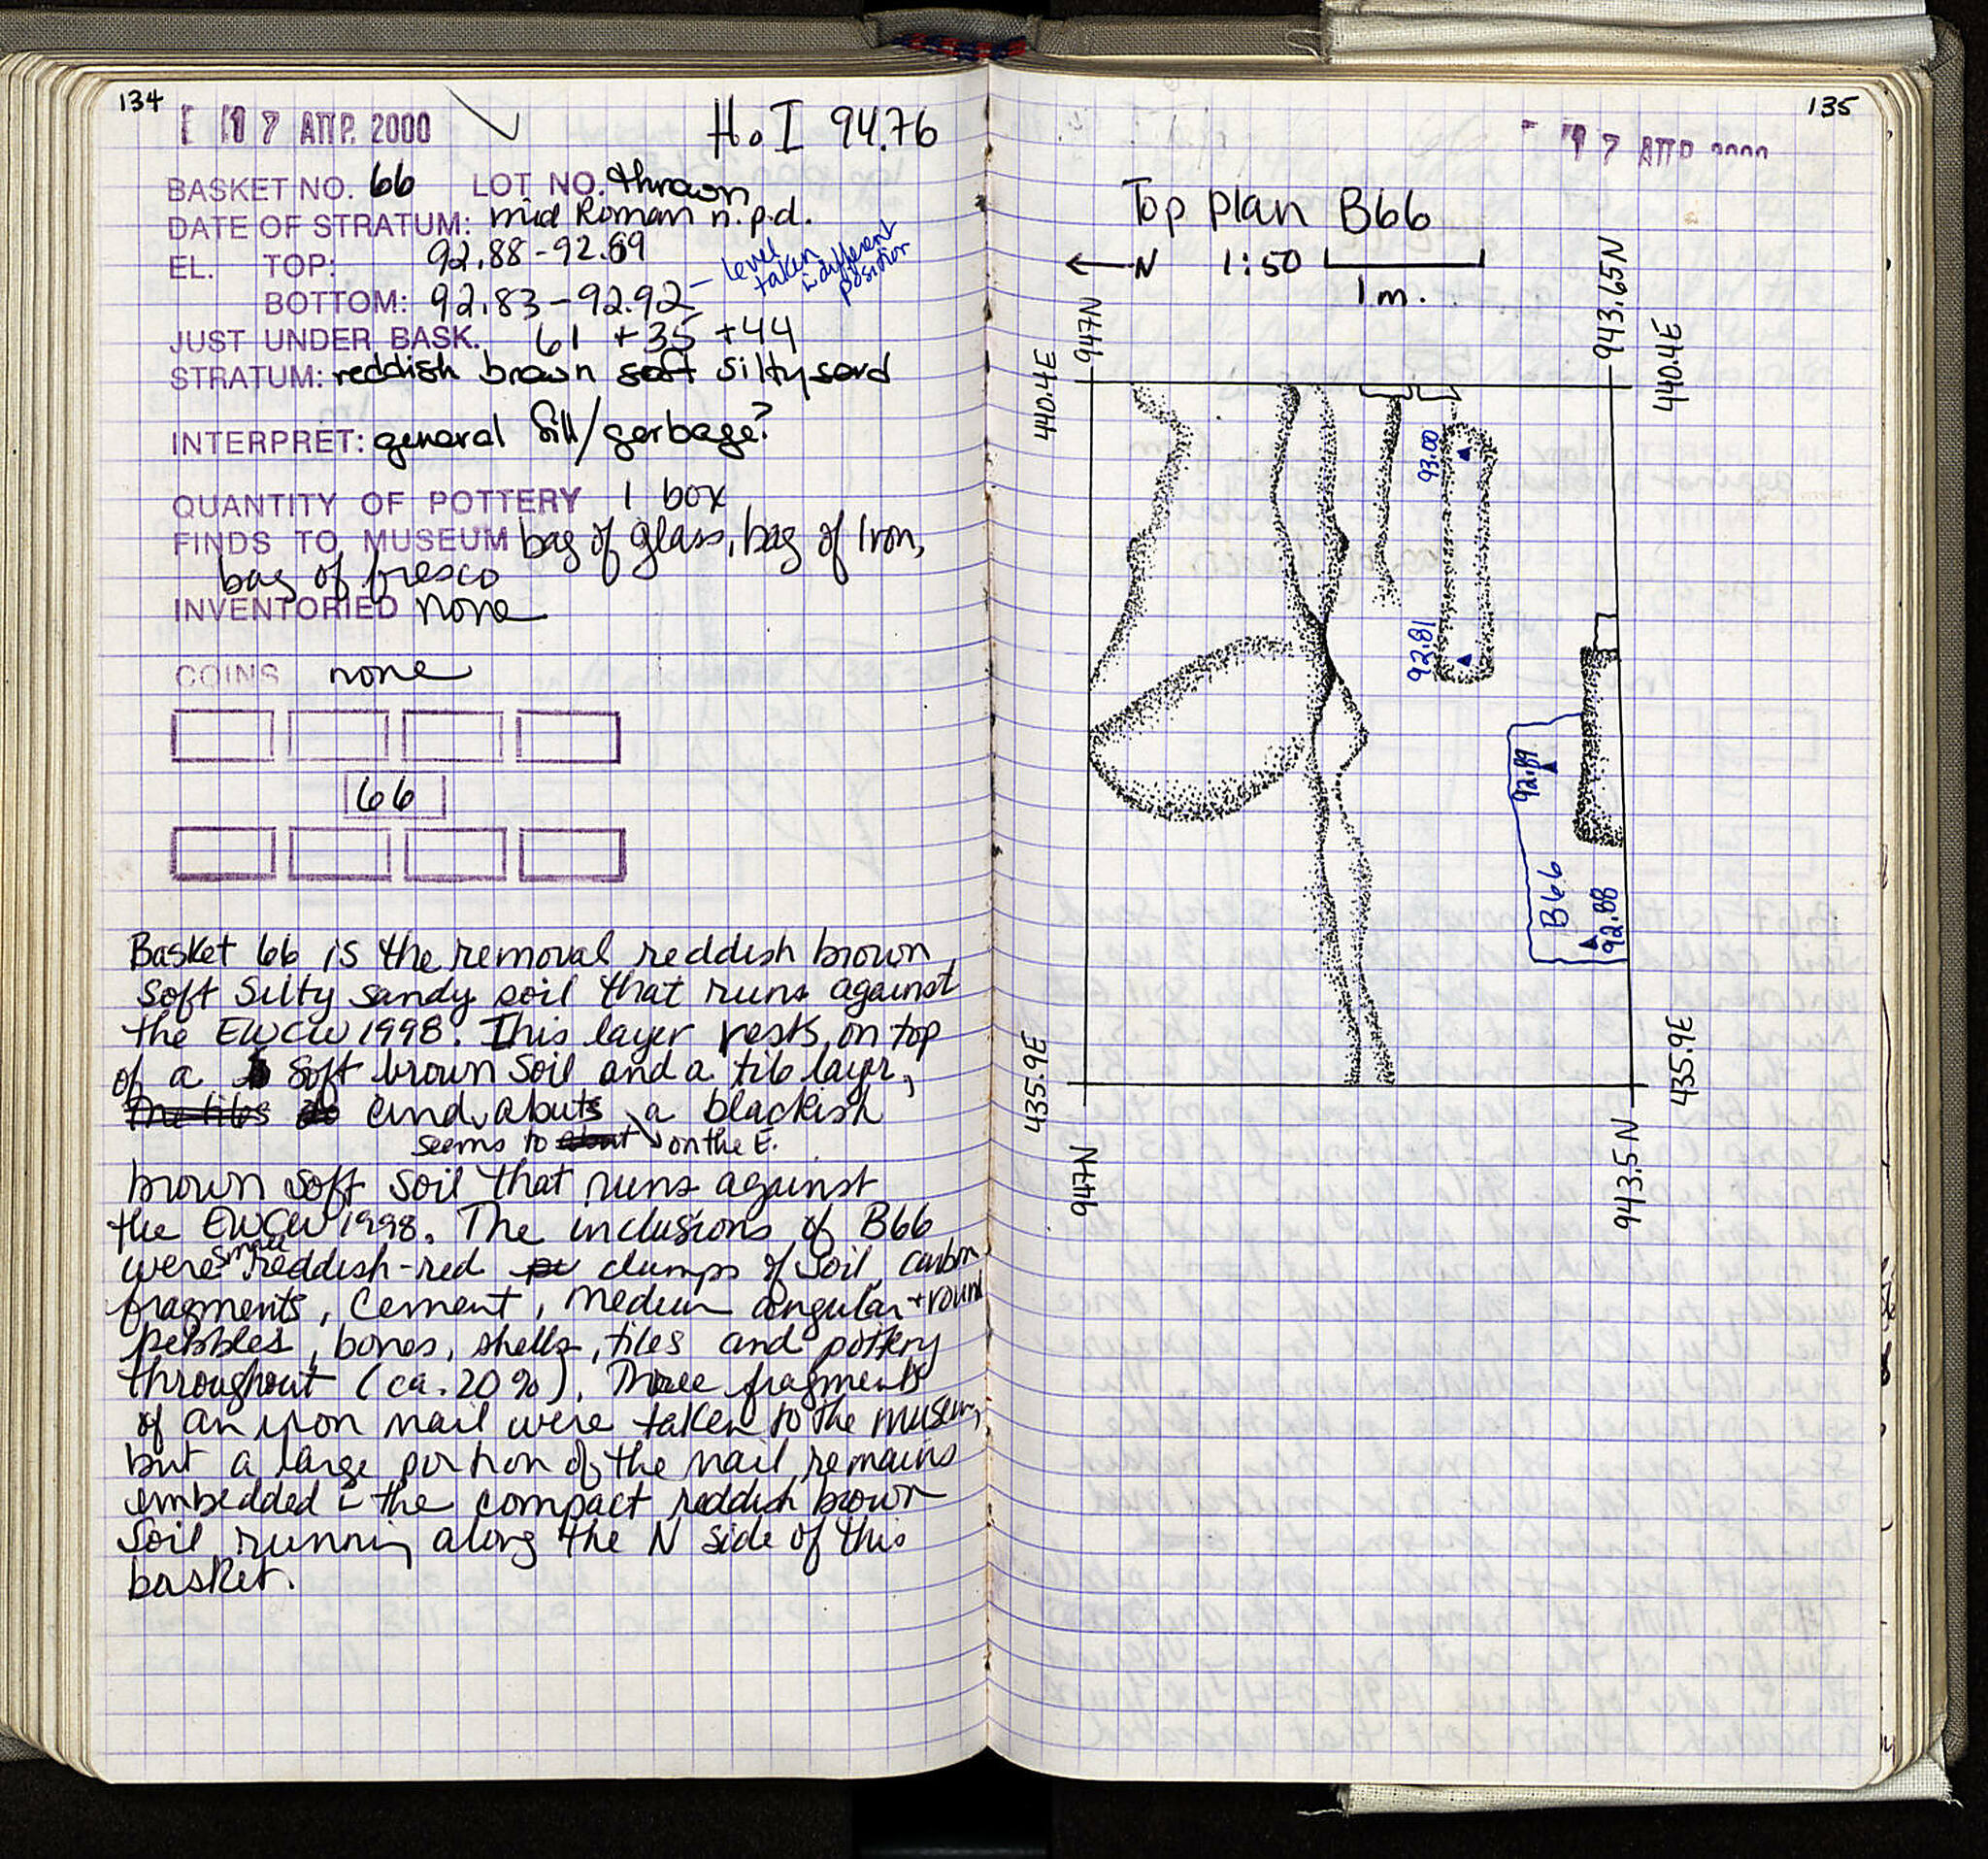 134
17 ΑΠΡ. 2000
H.I 94.76
BASKET NO. 66 LOT NO. thrown
DATE OF STRATUM: mid Roman n.p.d.
EL. TOP: 92.88-92.69
BOTTOM: 92.83-92.92 - level taken in different position
JUST UNDER BASK. 61 +35 +44
STRATUM: reddish brown soft silty sand
INTERPRET: general fill/garbage?
QUANTITY OF POTTERY 1 box
FINDS TO MUSEUM bag of glass, bag of Iron,
bag of fresco
INVENTORIED none
COINS none
66
Basket 66 is the removal reddish brown
soft silty sandy soil that runs against
the EWCW 1998. This layer rests on top
of a soft brown soil and a tile layer,
the tiles and abuts a blackish
seems to about on the E.
brown soft soil that runs against
the EWCW 1998. The inclusions of B66
were small reddish-red clumps of soil carbon
fragments, cement, medium angular + round
pebbles, bones, shells, tiles and pottery
throughout (ca. 20%). Three fragments
of an iron nail were taken to the museum,
but a large portion of the nail remains
embedded in the compact reddish brown
soil running along the N side of this
basket.
135
17 ΑΠΡ 2000
Top plan B66
N 1:50
1 m.
947N
943.65N
440.4E
440.4E
93.00
92.81
92.89
B66
92.88
435.9E
435.9E
947N
943.5N